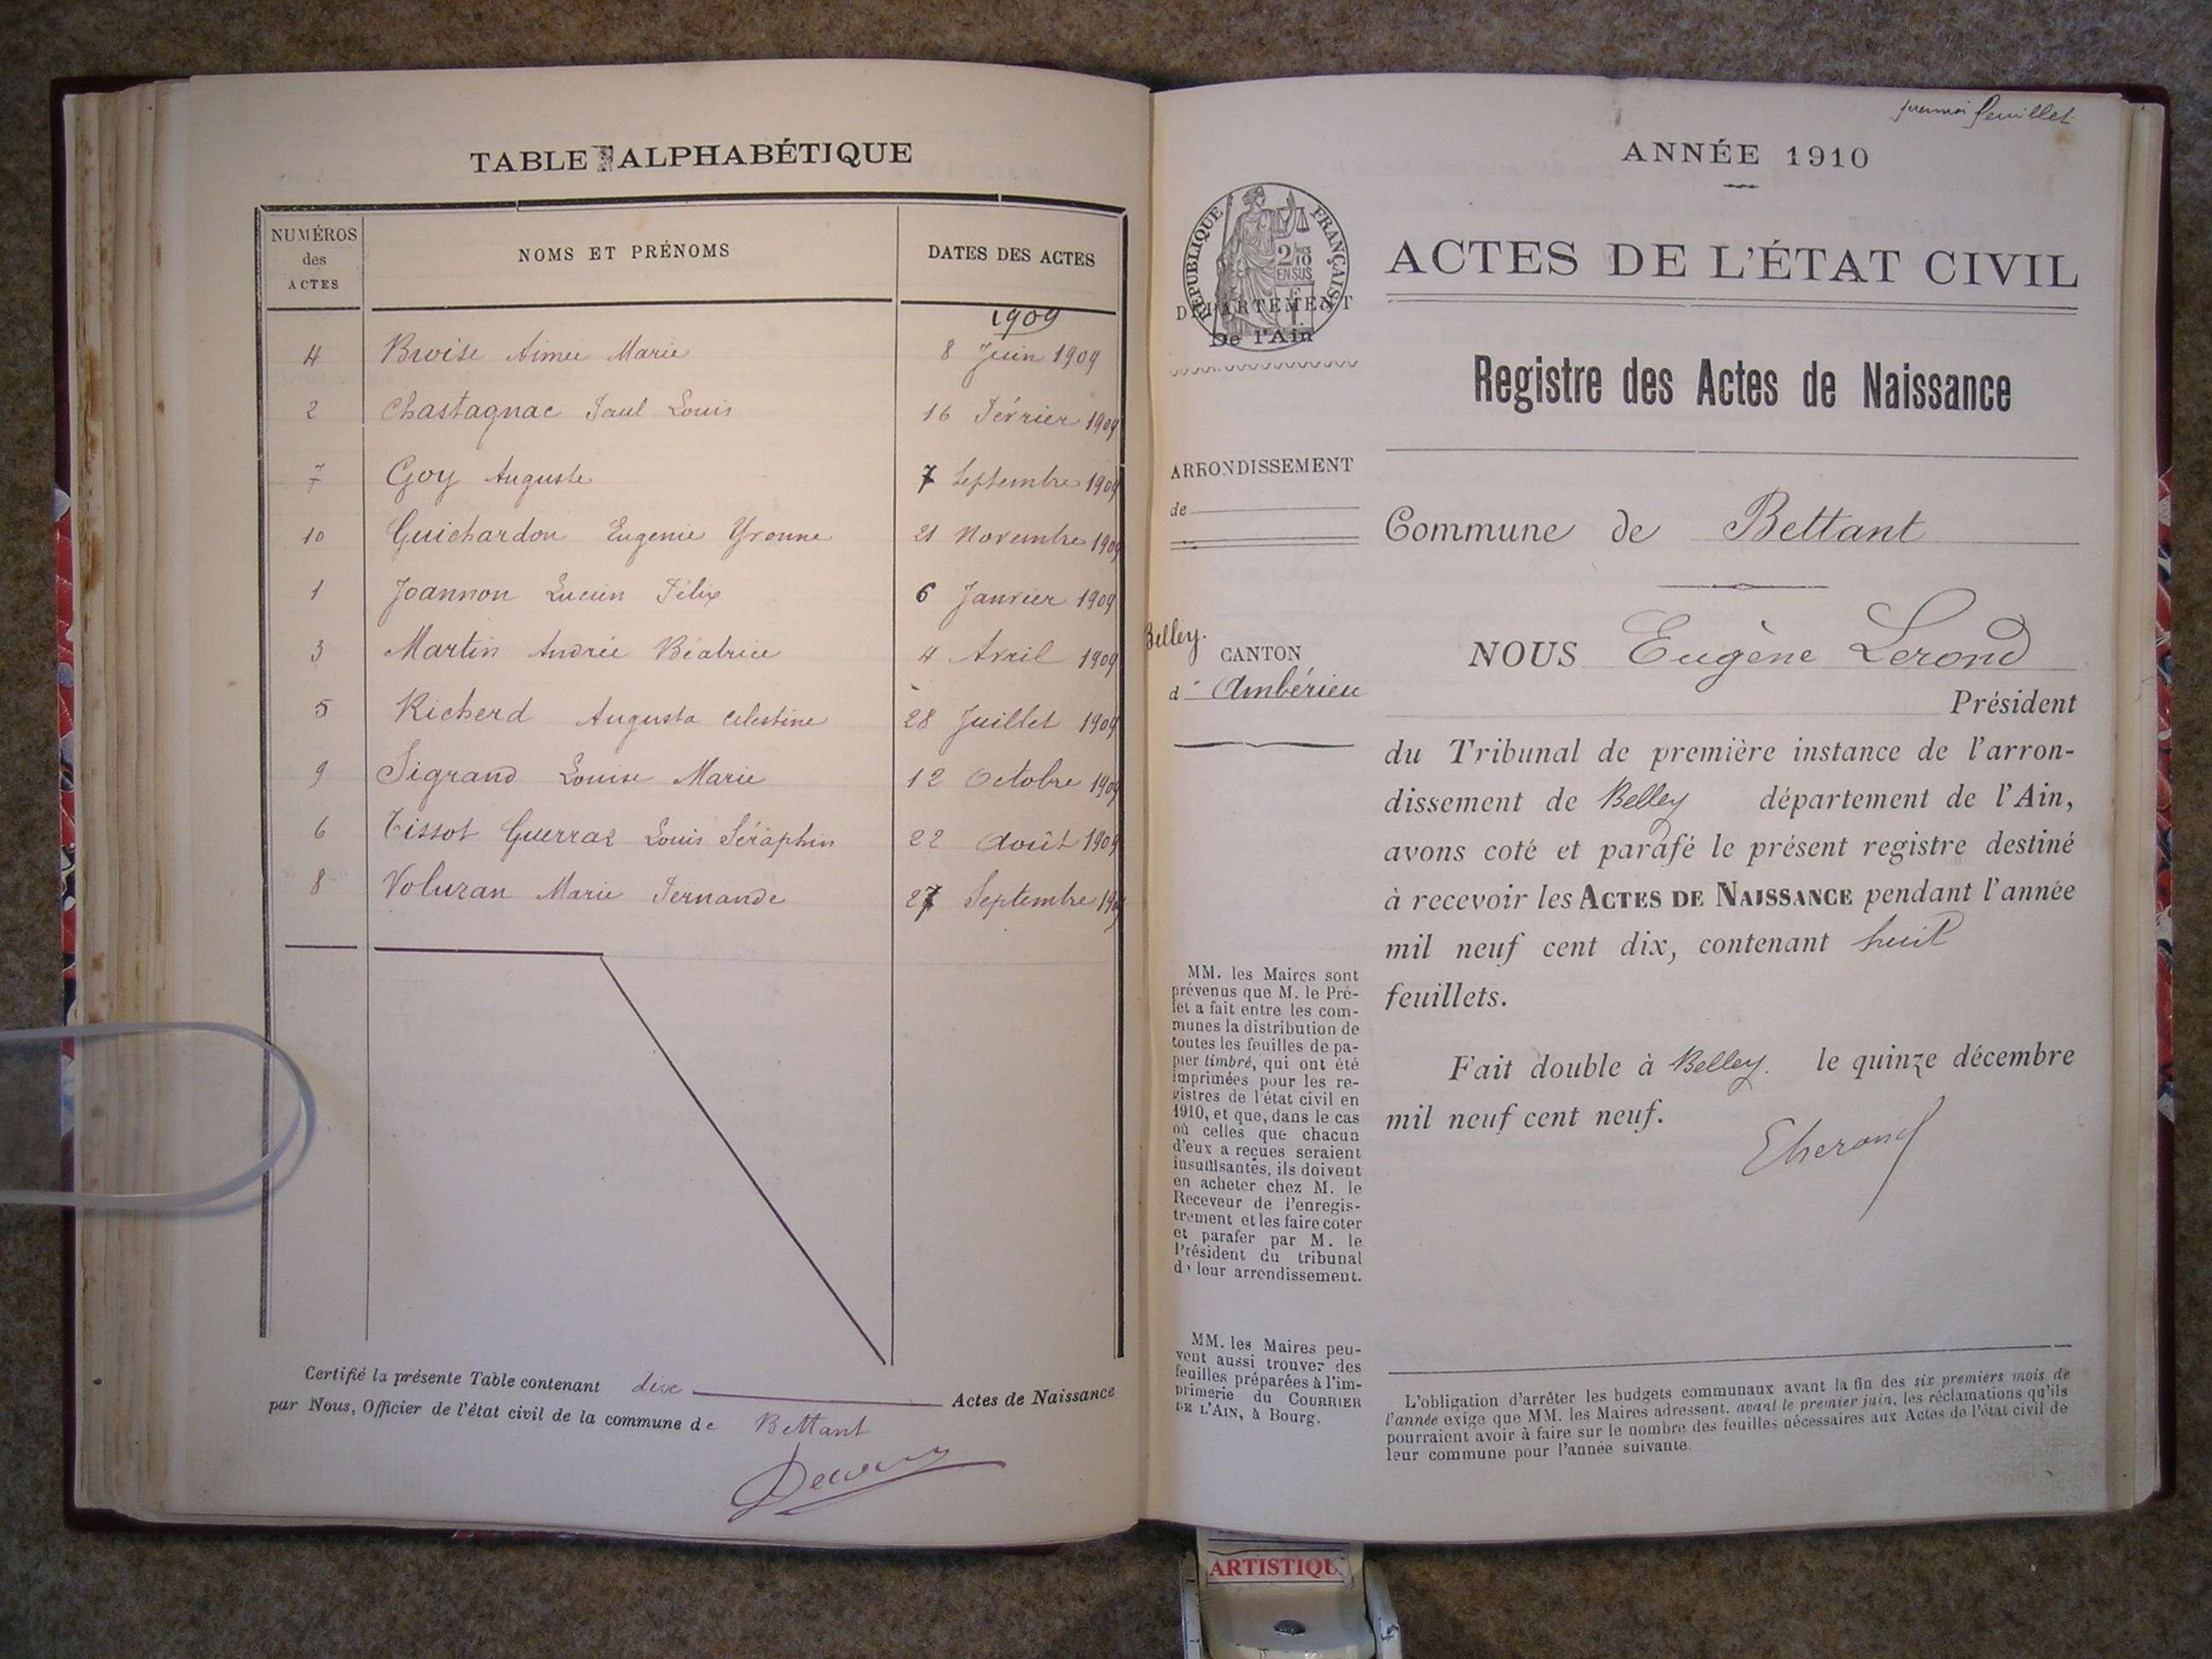 TABLE ALPHABÉTIQUE
NUMÉROS des ACTES NOMS ET PRÉNOMS DATES DES ACTES
1909
4 Broise Aimée Marie 8 Juin 1909
2 Chastagnac Paul Louis 16 Février 1909
7 Goy Auguste 7 Septembre 1909
10 Guichardon Eugenie Yvonne 21 Novembre 1909
1 Joannon Lucien Félix 6 Janvier 1909
3 Martin Andrée Béatrice 4 Avril 1909
5 Richerd Augusta Celestine 28 Juillet 1909
9 Sigrand Louise Marie 12 Octobre 1909
6 Tissot Guerraz Louis Séraphin 22 Août 1909
8 Voluzan Marie Fernande 27 Septembre 1909
Certifié la présente Table contenant dix Actes de Naissance
par Nous, Officier de l'état civil de la commune de Bettant
premier feuillet
ANNÉE 1910
RÉPUBLIQUE FRANÇAISE
2/10 EN SUS
DÉPARTEMENT
De l'Ain
ACTES DE L'ÉTAT CIVIL
Registre des Actes de Naissance
ARRONDISSEMENT
de
Belley.
CANTON
d' Ambérieu
Commune de Bettant
NOUS Eugène Lerond
Président
du Tribunal de première instance de l'arron-
dissement de Belley département de l'Ain,
avons coté et parafé le présent registre destiné
à recevoir les ACTES DE NAISSANCE pendant l'année
mil neuf cent dix, contenant huit
feuillets.
Fait double à Belley. le quinze décembre
mil neuf cent neuf.
MM. les Maires sont
prévenus que M. le Pré-
fet a fait entre les com-
munes la distribution de
toutes les feuilles de pa-
pier timbré, qui ont été
imprimées pour les re-
gistres de l'état civil en
1910, et que, dans le cas
où celles que chacun
d'eux a reçues seraient
insuffisantes, ils doivent
en acheter chez M. le
Receveur de l'enregis-
trement et les faire coter
et parafer par M. le
Président du tribunal
de leur arrondissement.
MM. les Maires peu-
vent aussi trouver des
feuilles préparées à l'im-
primerie du COURRIER
DE L'AIN, à Bourg.
L'obligation d'arrêter les budgets communaux avant la fin des six premiers mois de
l'année exige que MM. les Maires adressent, avant le premier juin, les réclamations qu'ils
pourraient avoir à faire sur le nombre des feuilles nécessaires aux Actes de l'état civil de
leur commune pour l'année suivante.
ARTISTIQU